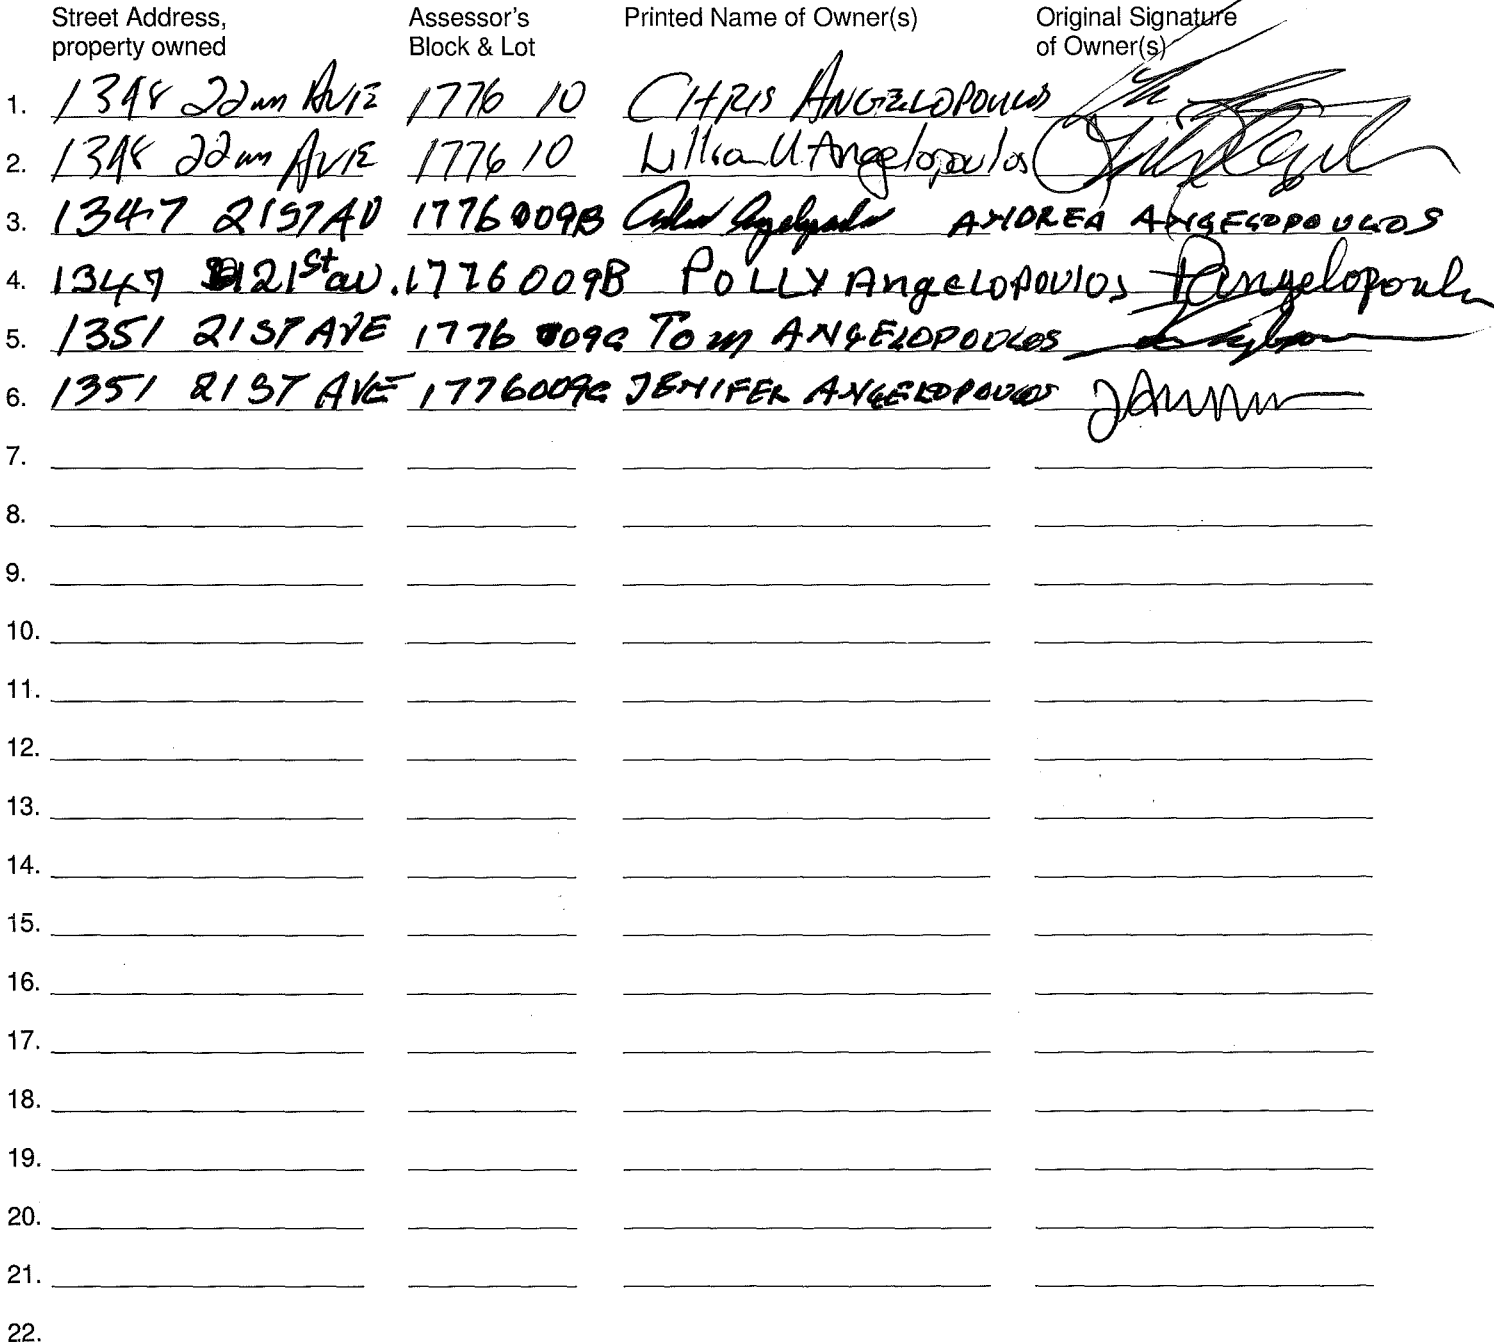 Street Address, Assessor's Printed Name of Owner(s) Original Signature
property owned Block & Lot of Owner(s)
1. 1398 22nd AVE 1776 10 CHRIS ANGELOPOULOS
2. 1398 22nd AVE 1776 10 Lillian U Angelopoulos
3. 1347 21ST AV 1776 009B ANDREA ANGELOPOULOS
4. 1347 21st av. 1776 009B POLLY AngeLOPOUlOS PAngelopoulos
5. 1351 21ST AVE 1776 009C TOM ANGELOPOULOS
6. 1351 21ST AVE 1776009C JENIFER ANGELOPOULOS
7.
8.
9.
10.
11.
12.
13.
14.
15.
16.
17.
18.
19.
20.
21.
22.